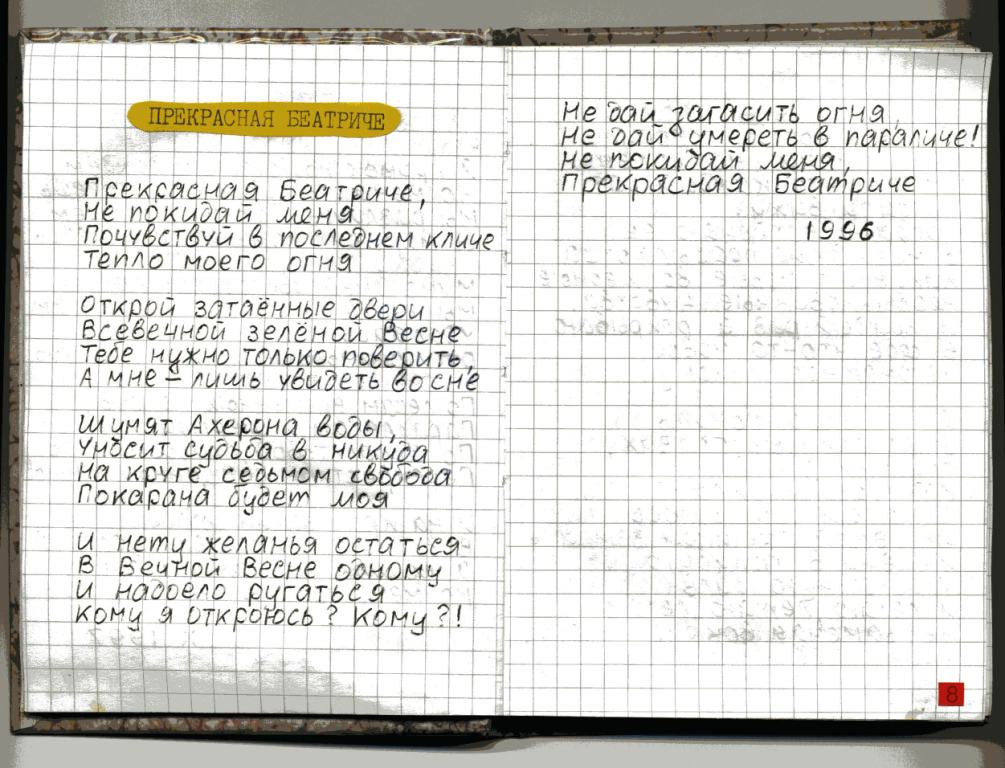 ПРЕКРАСНАЯ БЕАТРИЧЕ
Прекрасная Беатриче,
Не покидай меня
Почувствуй в последнем кличе
Тепло моего огня
Открой затаённые двери
Всевечной зелёной Весне
Тебе нужно только поверить,
А мне – лишь увидеть во сне
Шумят Ахерона воды,
Уносит судьба в никуда
На круге седьмом свобода
Покарана будет моя
И нету желанья остаться
В Вечной Весне одному
И надоело ругаться
Кому я откроюсь? Кому?!
Не дай загасить огня,
Не дай умереть в параличе!
Не покидай меня,
Прекрасная Беатриче
1996
8